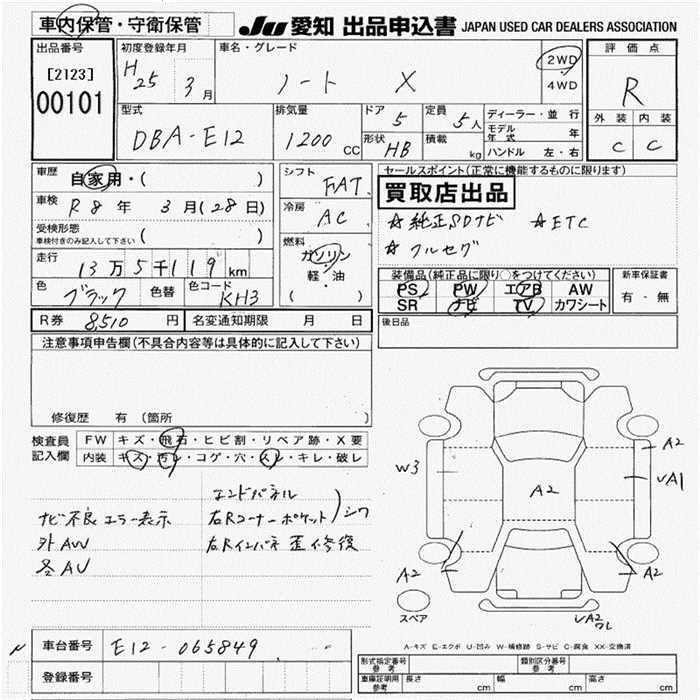 車内保管・守衛保管
JU 愛知 出品申込書 JAPAN USED CAR DEALERS ASSOCIATION
出品番号
[2123]
00101
初度登録年月
H25 3月
車名・グレード
ノート X
2WD
4WD
評価点
R
外装 内装
C C
型式
DBA-E12
排気量
1200 CC
ドア
5
定員
5人
形状
HB
積載
kg
ディーラー・並行
モデル年式 年
ハンドル 左・右
車歴
自家用・( )
車検
R8年 3月(28日)
受検形態
車検付きのみ記入して下さい ( )
走行
13万5千119km
色
ブラック
色替
色コード
KH3
シフト
FAT
冷房
AC
燃料
ガソリン
軽・油
( )
セールスポイント(正常に機能するものに限ります)
買取店出品
☆純正SDナビ ☆ETC
☆フルセグ
装備品(純正品に限り○をつけてください)
PS PW エアB AW
SR ナビ TV カワシート
新車保証書
有・無
R券 8510 円
名変通知期限 月 日
後日品
注意事項申告欄(不具合内容等は具体的に記入して下さい)
修復歴 有(箇所
検査員記入欄
FW キズ・飛石・ヒビ割・リペア跡・X要
内装 キズ・汚レ・コゲ・穴・スレ・キレ・破レ
エンドパネル
ナビ不良エラー表示 右Rコーナーポケット)シワ
外AW 右Rインパネ 歪修復
冬AW
W3
A2
A2
A1
A2
A2
スペア
A2
ワレ
A-キズ E-エクボ U-凹み W-補修跡 S-サビ C-腐食 XX-交換済
車台番号 E12-065849
登録番号
型式指定番号 参考
類別区分番号 参考
車庫証明用 参考 長さ cm 幅 cm 高さ cm